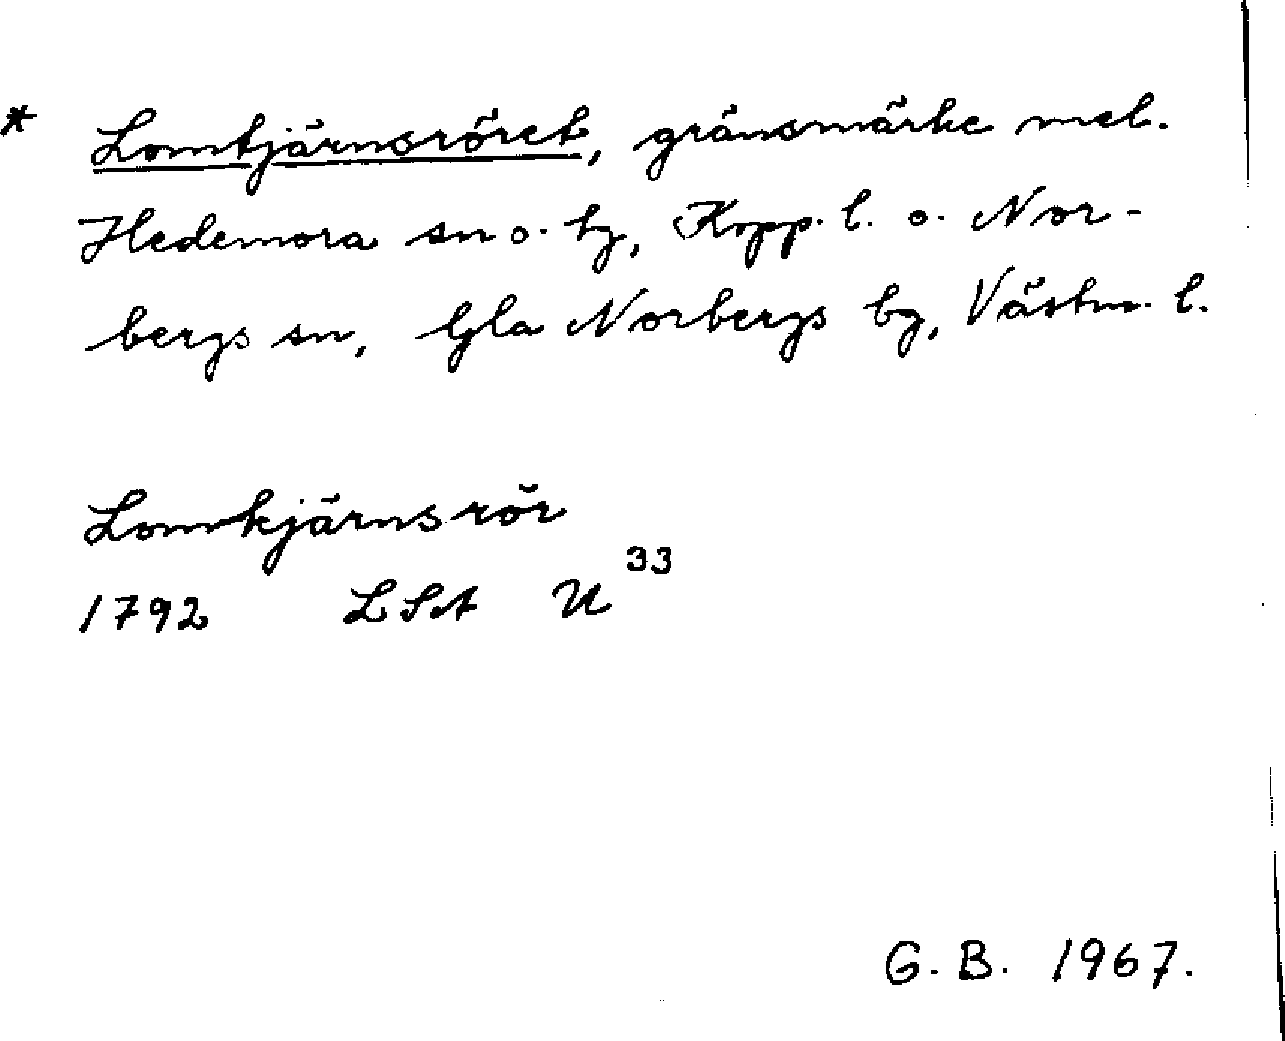 * Lomtjärnsröret, gränsmärke mel.
Hedemora sn o. tg, Kopp. l. o. Nor-
bergs sn, Gla Norbergs bg, Västm. l.
Lomkjärnsrör
1792 LSA U 33
G. B. 1967.